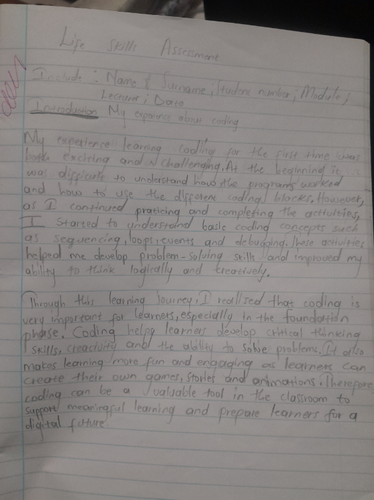 Life skills Assessment
Include : Name & Surname ; Student number ; Module ;
Lecturer ; Date
Introduction My experience about coding
My experience learning coding for the first time was
both exciting and challenging. At the beginning it
was difficult to understand how the programs worked
and how to use the different coding blocks. However,
as I continued practicing and completing the activities,
I started to understand basic coding concepts such
as sequencing, loops, events and debugging. These activities
helped me develop problem-solving skills and improved my
ability to think logically and creatively.
Through this learning journey, I realised that coding is
very important for learners, especially in the foundation
phase. Coding helps learners develop critical thinking
skills, creativity and the ability to solve problems. It also
makes learning more fun and engaging as learners can
create their own games, stories and animations. Therefore
coding can be a valuable tool in the classroom to
support meaningful learning and prepare learners for a
digital future